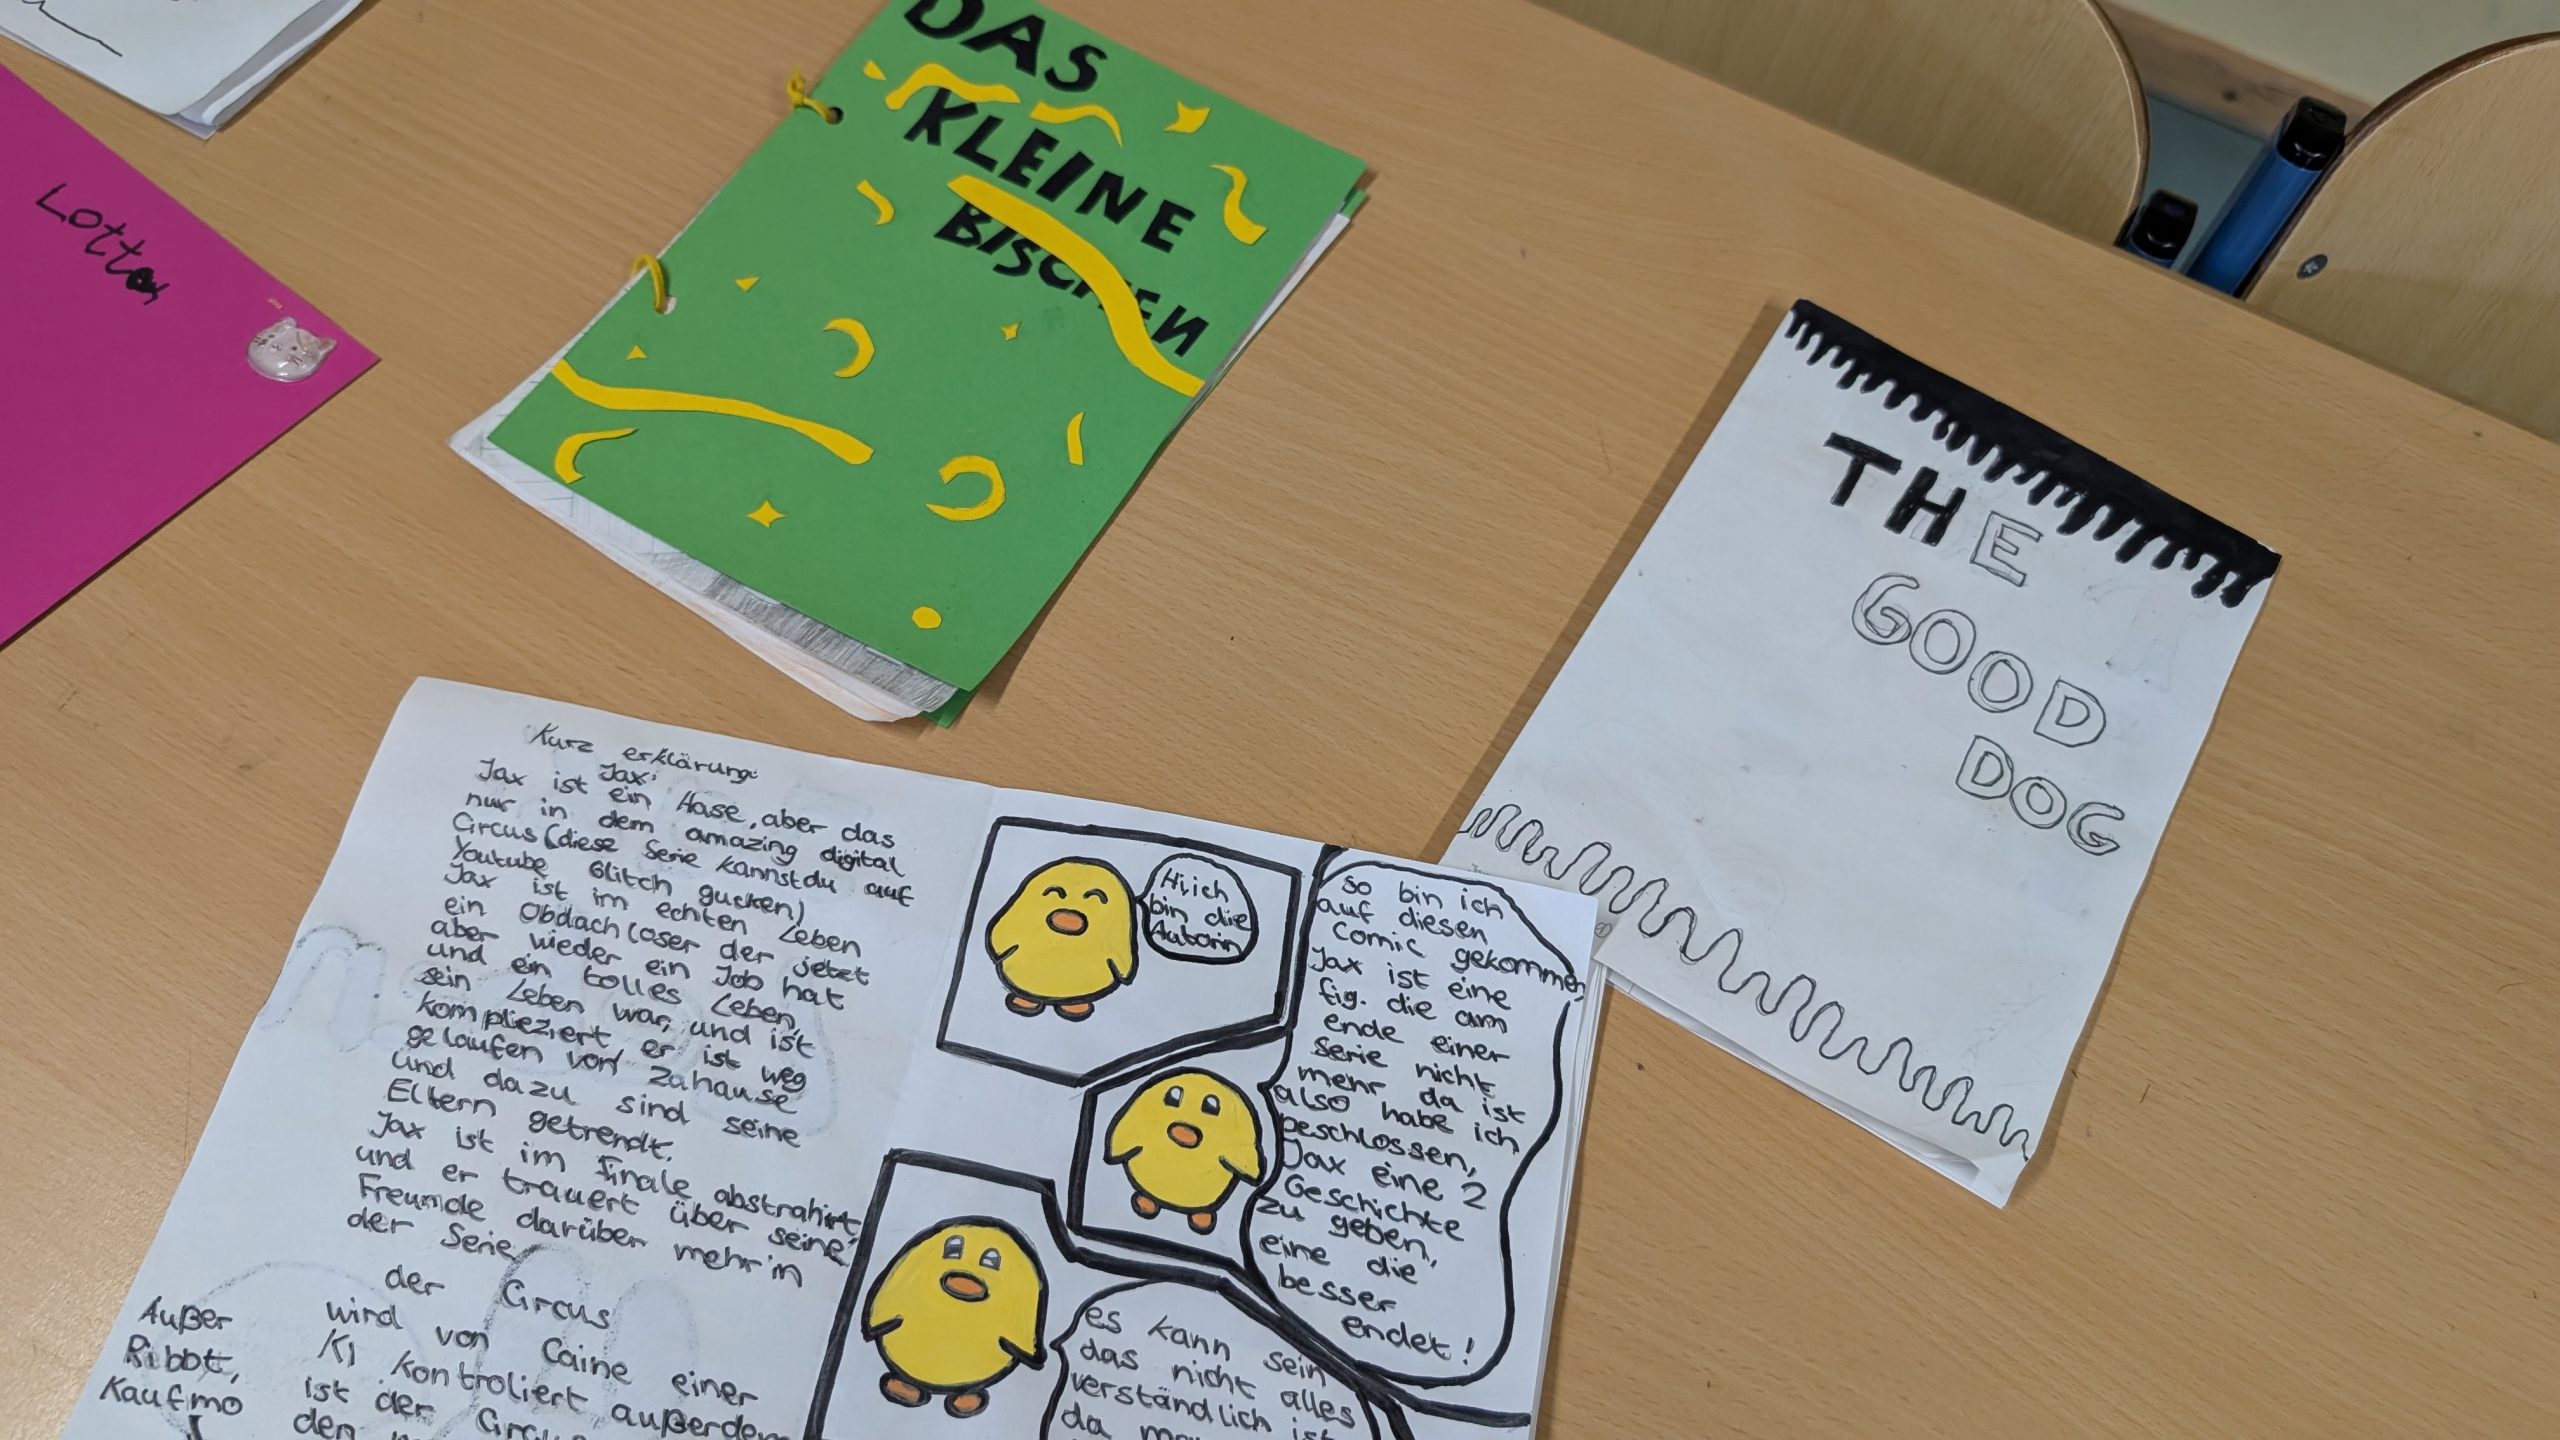 Lotta
DAS
KLEINE
BISCHEN
THE
GOOD
DOG
Kurz erklärung:
Jax:
Jax ist ein Hase, aber das
nur in dem amazing digital
Circus (diese Serie kannst du auf
Youtube Glitch gucken)
Jax ist im echten Leben
ein Obdachloser der jetzt
aber wieder ein Job hat
und ein tolles Leben,
sein Leben war, und ist
komplieziert er ist weg
gelaufen von Zuhause
und dazu sind seine
Eltern getrendt.
Jax ist im Finale abstrahirt
und er trauert über seine
Freunde darüber mehr in
der Serie
der Circus
wird von Caine einer
KI kontroliert außerdem
ist der Circus
den
Außer
Ribbt,
Kaufmo
Hi, ich
bin die
Autorin
so bin ich
auf diesen
Comic gekommen,
Jax ist eine
fig. die am
ende einer
Serie nicht
mehr da ist
also habe ich
beschlossen,
Jax eine 2
Geschichte
zu geben,
eine die
besser
endet!
es kann sein
das nicht alles
verständlich ist
da